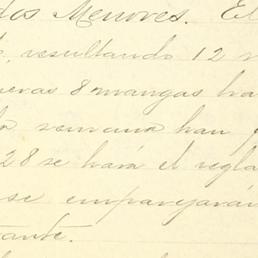 dos Menores. El
, resultando 12
8 mangas ha
semana han
28 se hará el regla
se emparejará
tante.